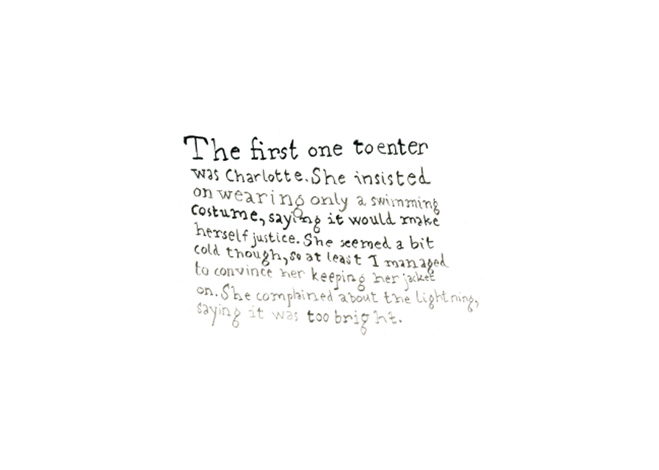 The first one to enter
was Charlotte. She insisted
on wearing only a swimming
costume, saying it would make
herself justice. She seemed a bit
cold though, so at least I managed
to convince her keeping her jacket
on. She complained about the lightning,
saying it was too bright.